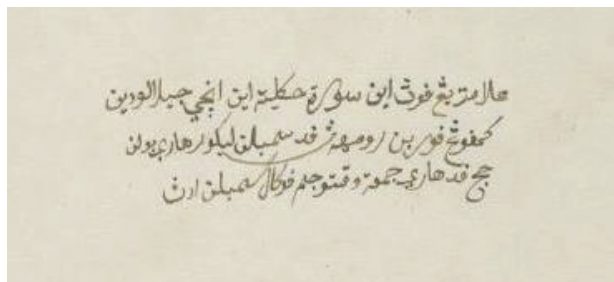 علامة يڠ فوڽ اين سورة حكاية اين انچي جيلالودين
كمفوڠ فوربن رومهڽ فد سمبلن ليكور هاري بولن
حج فد هاري جمعة وقتو جم فوكل سمبلن ادڽ